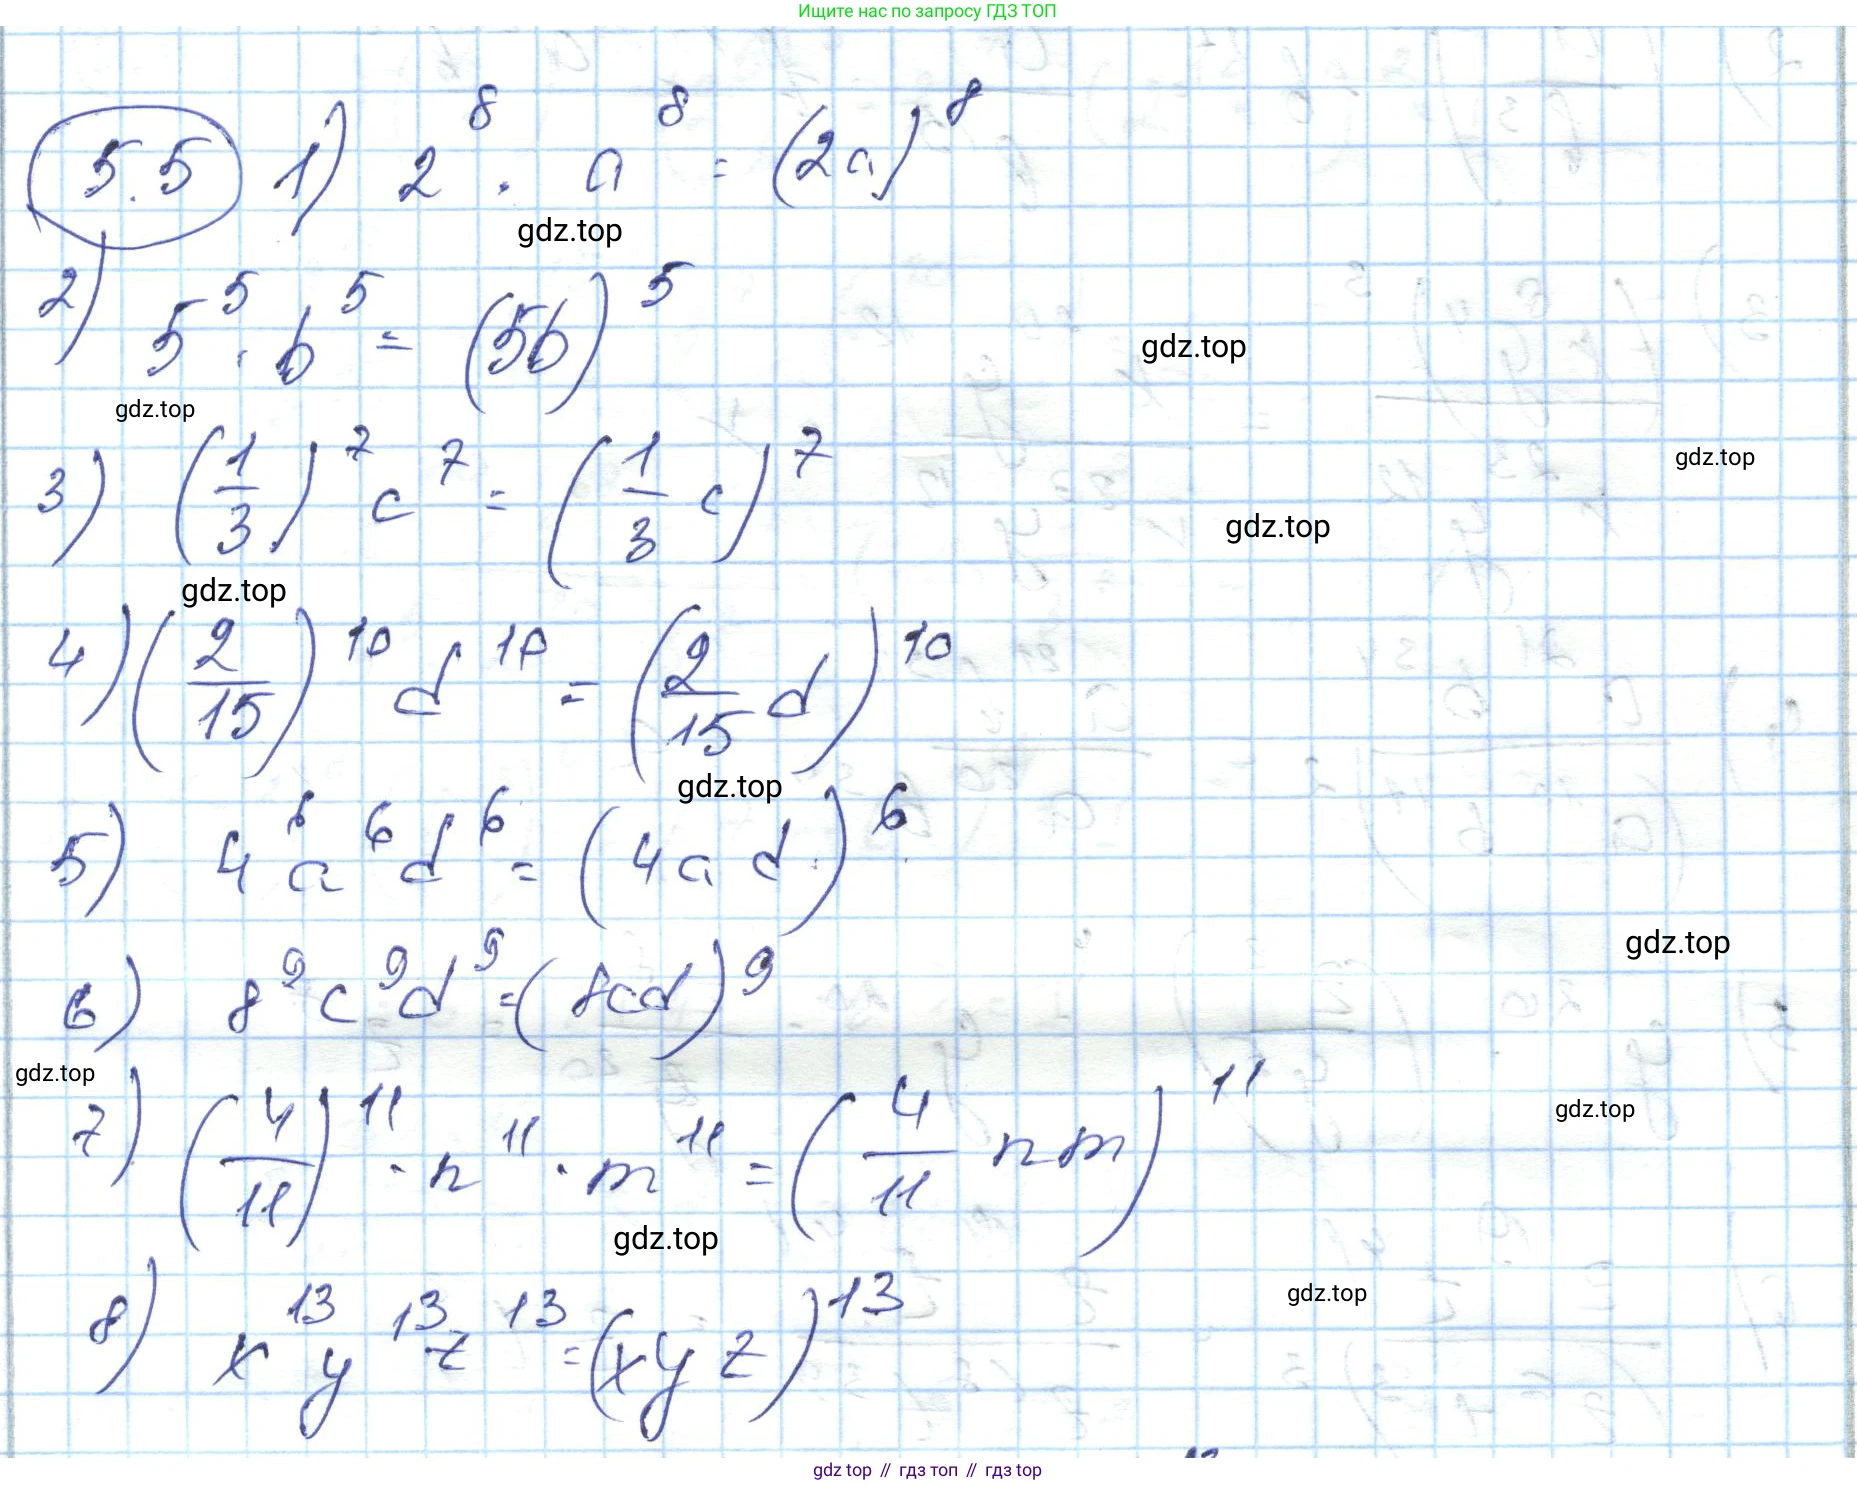 Ищите нас по запросу ГДЗ ТОП
5.5 1) 2^8 · a^8 = (2a)^8
gdz.top
2) 5^5 · b^5 = (5b)^5
gdz.top
gdz.top
3) (1/3)^7 c^7 = (1/3 c)^7
gdz.top
gdz.top
gdz.top
4) (2/15)^10 d^10 = (2/15 d)^10
gdz.top
5) 4^6 a^6 d^6 = (4ad)^6
gdz.top
6) 8^9 c^9 d^9 = (8cd)^9
gdz.top
gdz.top
7) (4/11)^11 · n^11 · m^11 = (4/11 nm)^11
gdz.top
gdz.top
8) x^13 y^13 z^13 = (xyz)^13
gdz top // гдз топ // гдз top